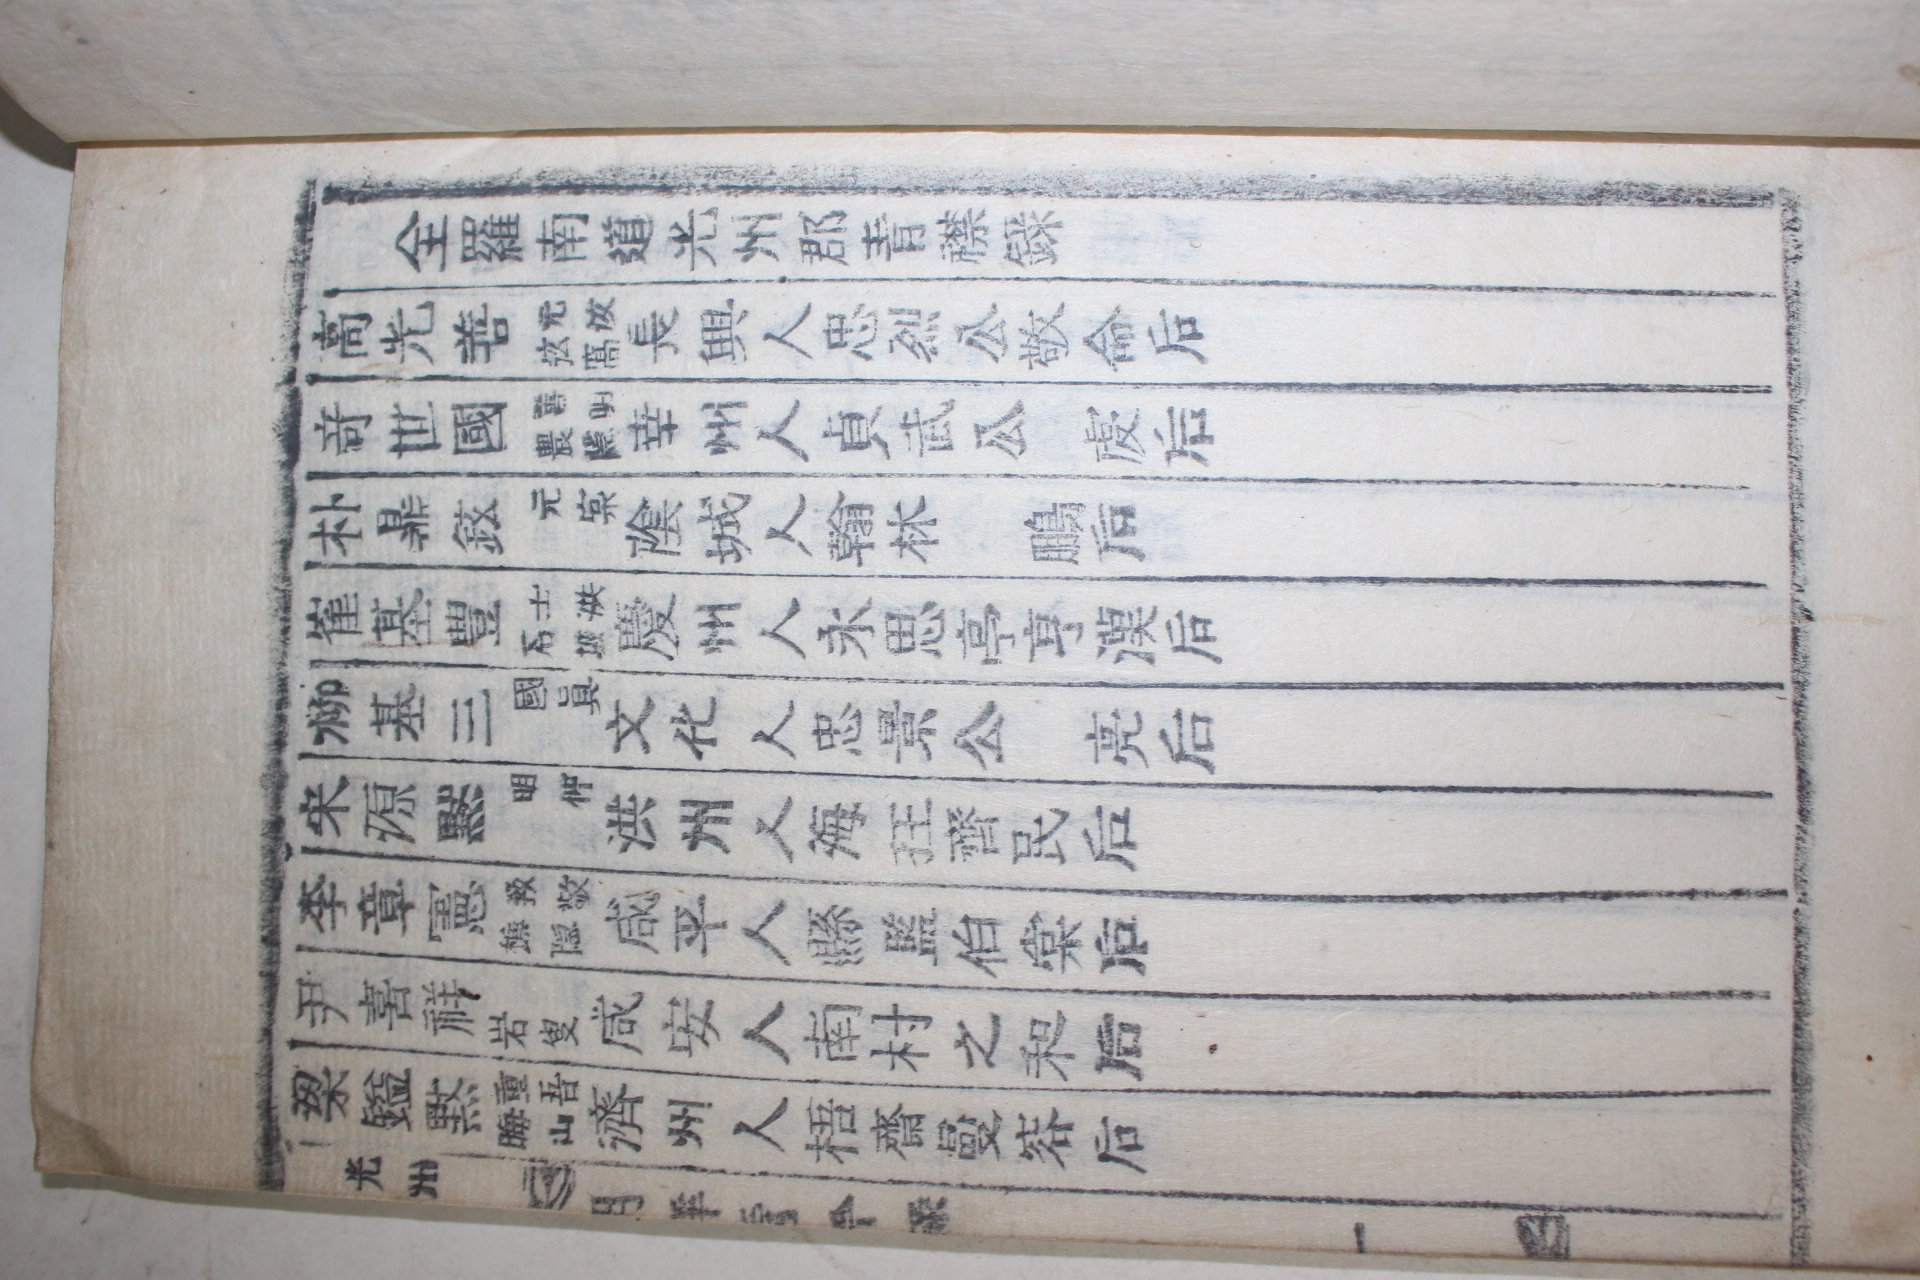 全羅南道光州郡靑襟錄
高光善 元汝 弦窩 長興人忠烈公敬命后
奇世國 善明 農隱 幸州人貞武公 虔后
朴鼎鉉 元宲 陰城人翰林 鵬后
崔基豊 士洪 石城 慶州人永思亭亨漢后
柳基三 國眞 文化人忠景公 亮后
宋源黙 明仲 洪州人海狂齊民后
李章憲 敬 樵隱 咸平人縣監伯棠后
尹喜祥 岩叟 咸安人南村之和后
梁鎰黙 重吾 晦山 濟州人梧齋曼容后
光州
一